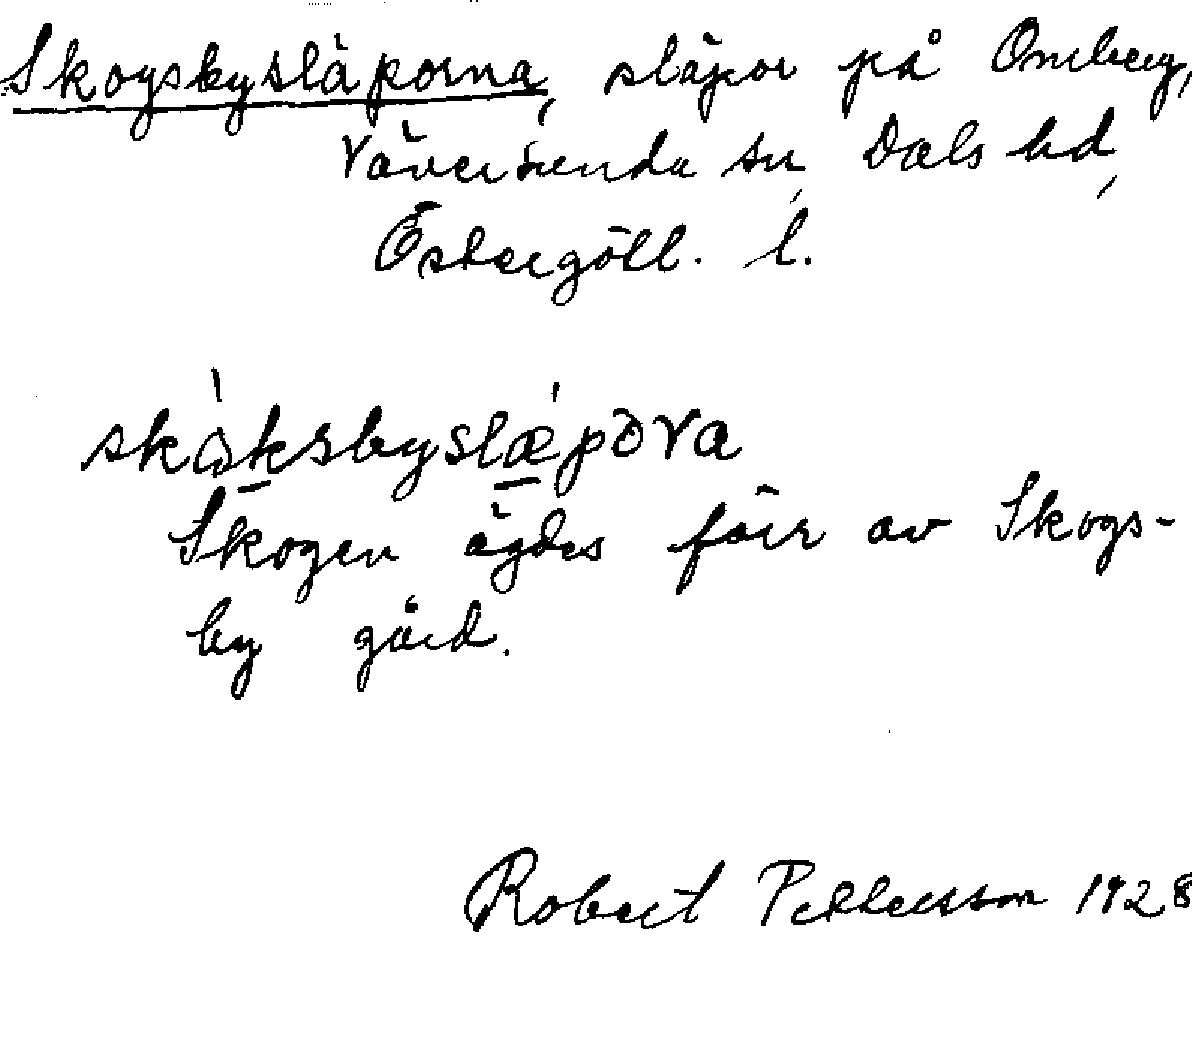 Skogsbysläporna, släpor på Omberg,
Väversunda sn, Dals hd,
Östergötl. l.
Skogen ägdes förr av Skogs-
by gård.
Robert Pettersson 1928